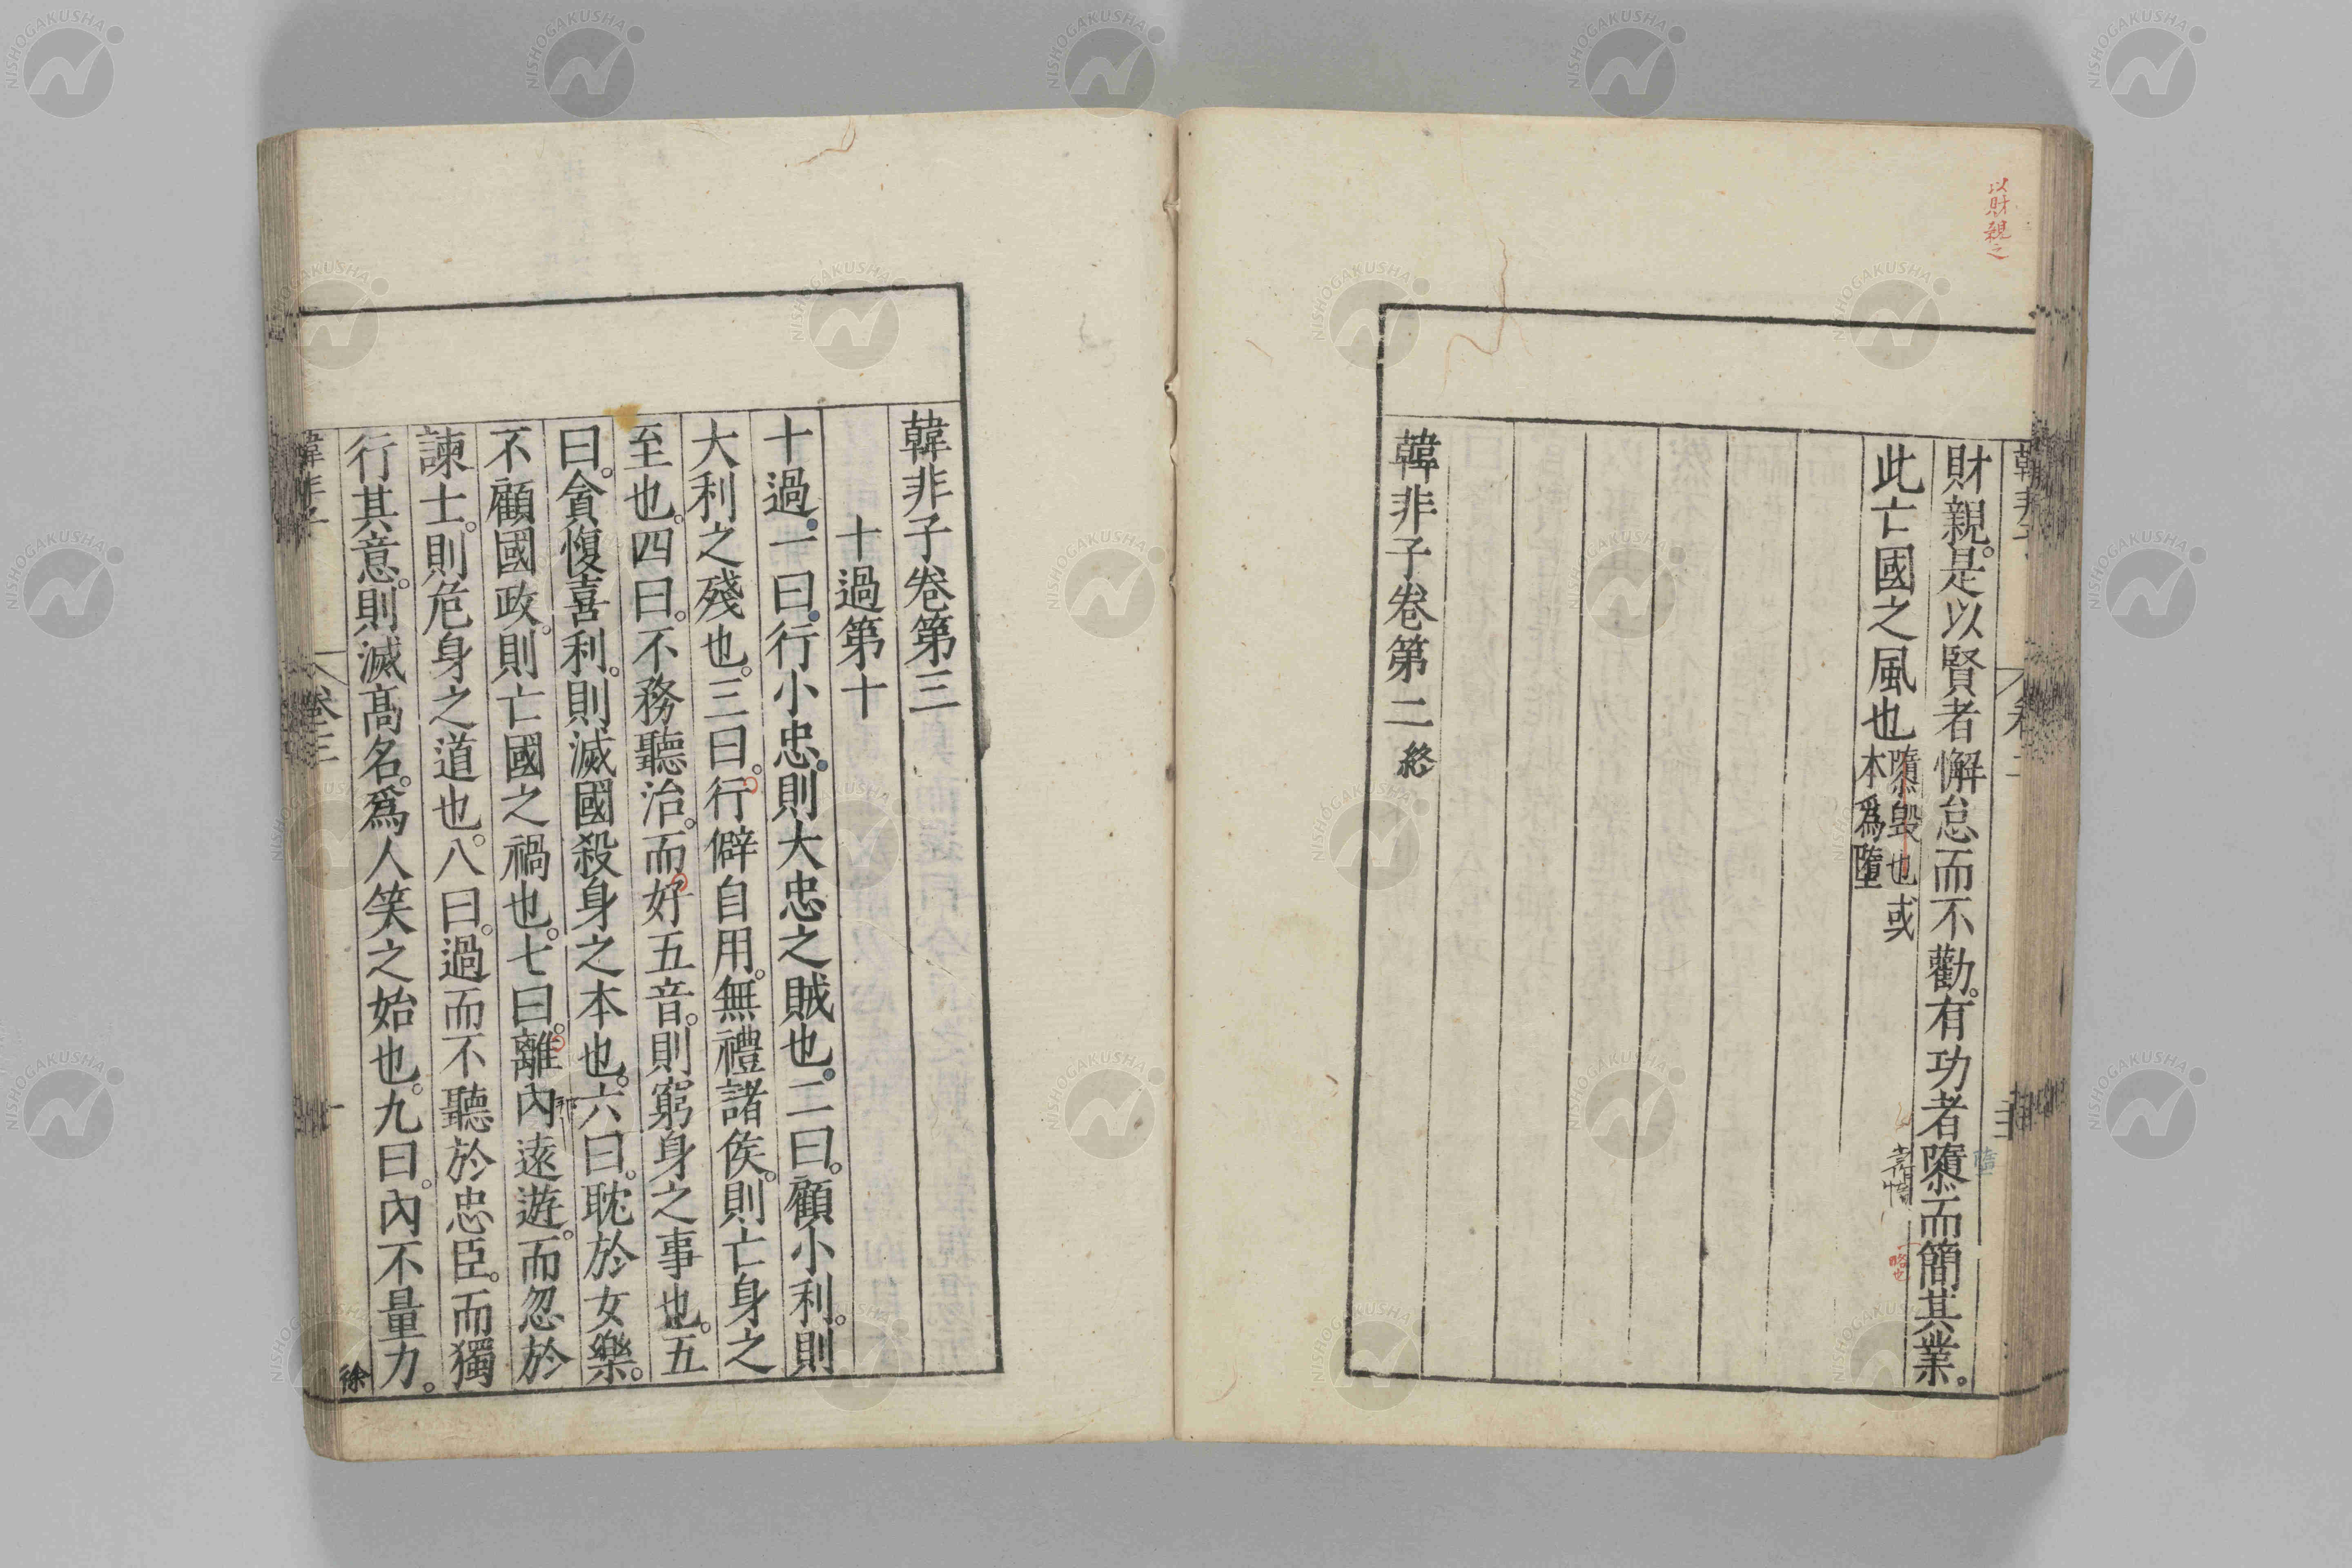 以財親之
財親。是以賢者懈怠而不勸。有功者隳而簡其業。
此亡國之風也
隳毀也或
本爲墮
略也
韓非子卷第二終
韓非子卷第三
十過第十
十過。一曰。行小忠。則大忠之賊也。二曰。顧小利。則
大利之殘也。三曰。行僻自用。無禮諸侯。則亡身之
至也。四曰。不務聽治。而好五音。則窮身之事也。五
曰。貪愎喜利。則滅國殺身之本也。六曰。耽於女樂。
不顧國政。則亡國之禍也。七曰。離內遠遊。而忽於
諫士。則危身之道也。八曰。過而不聽於忠臣。而獨
行其意。則滅高名。爲人笑之始也。九曰。內不量力。
韓非子 卷三
徐
NISHOGAKUSHA